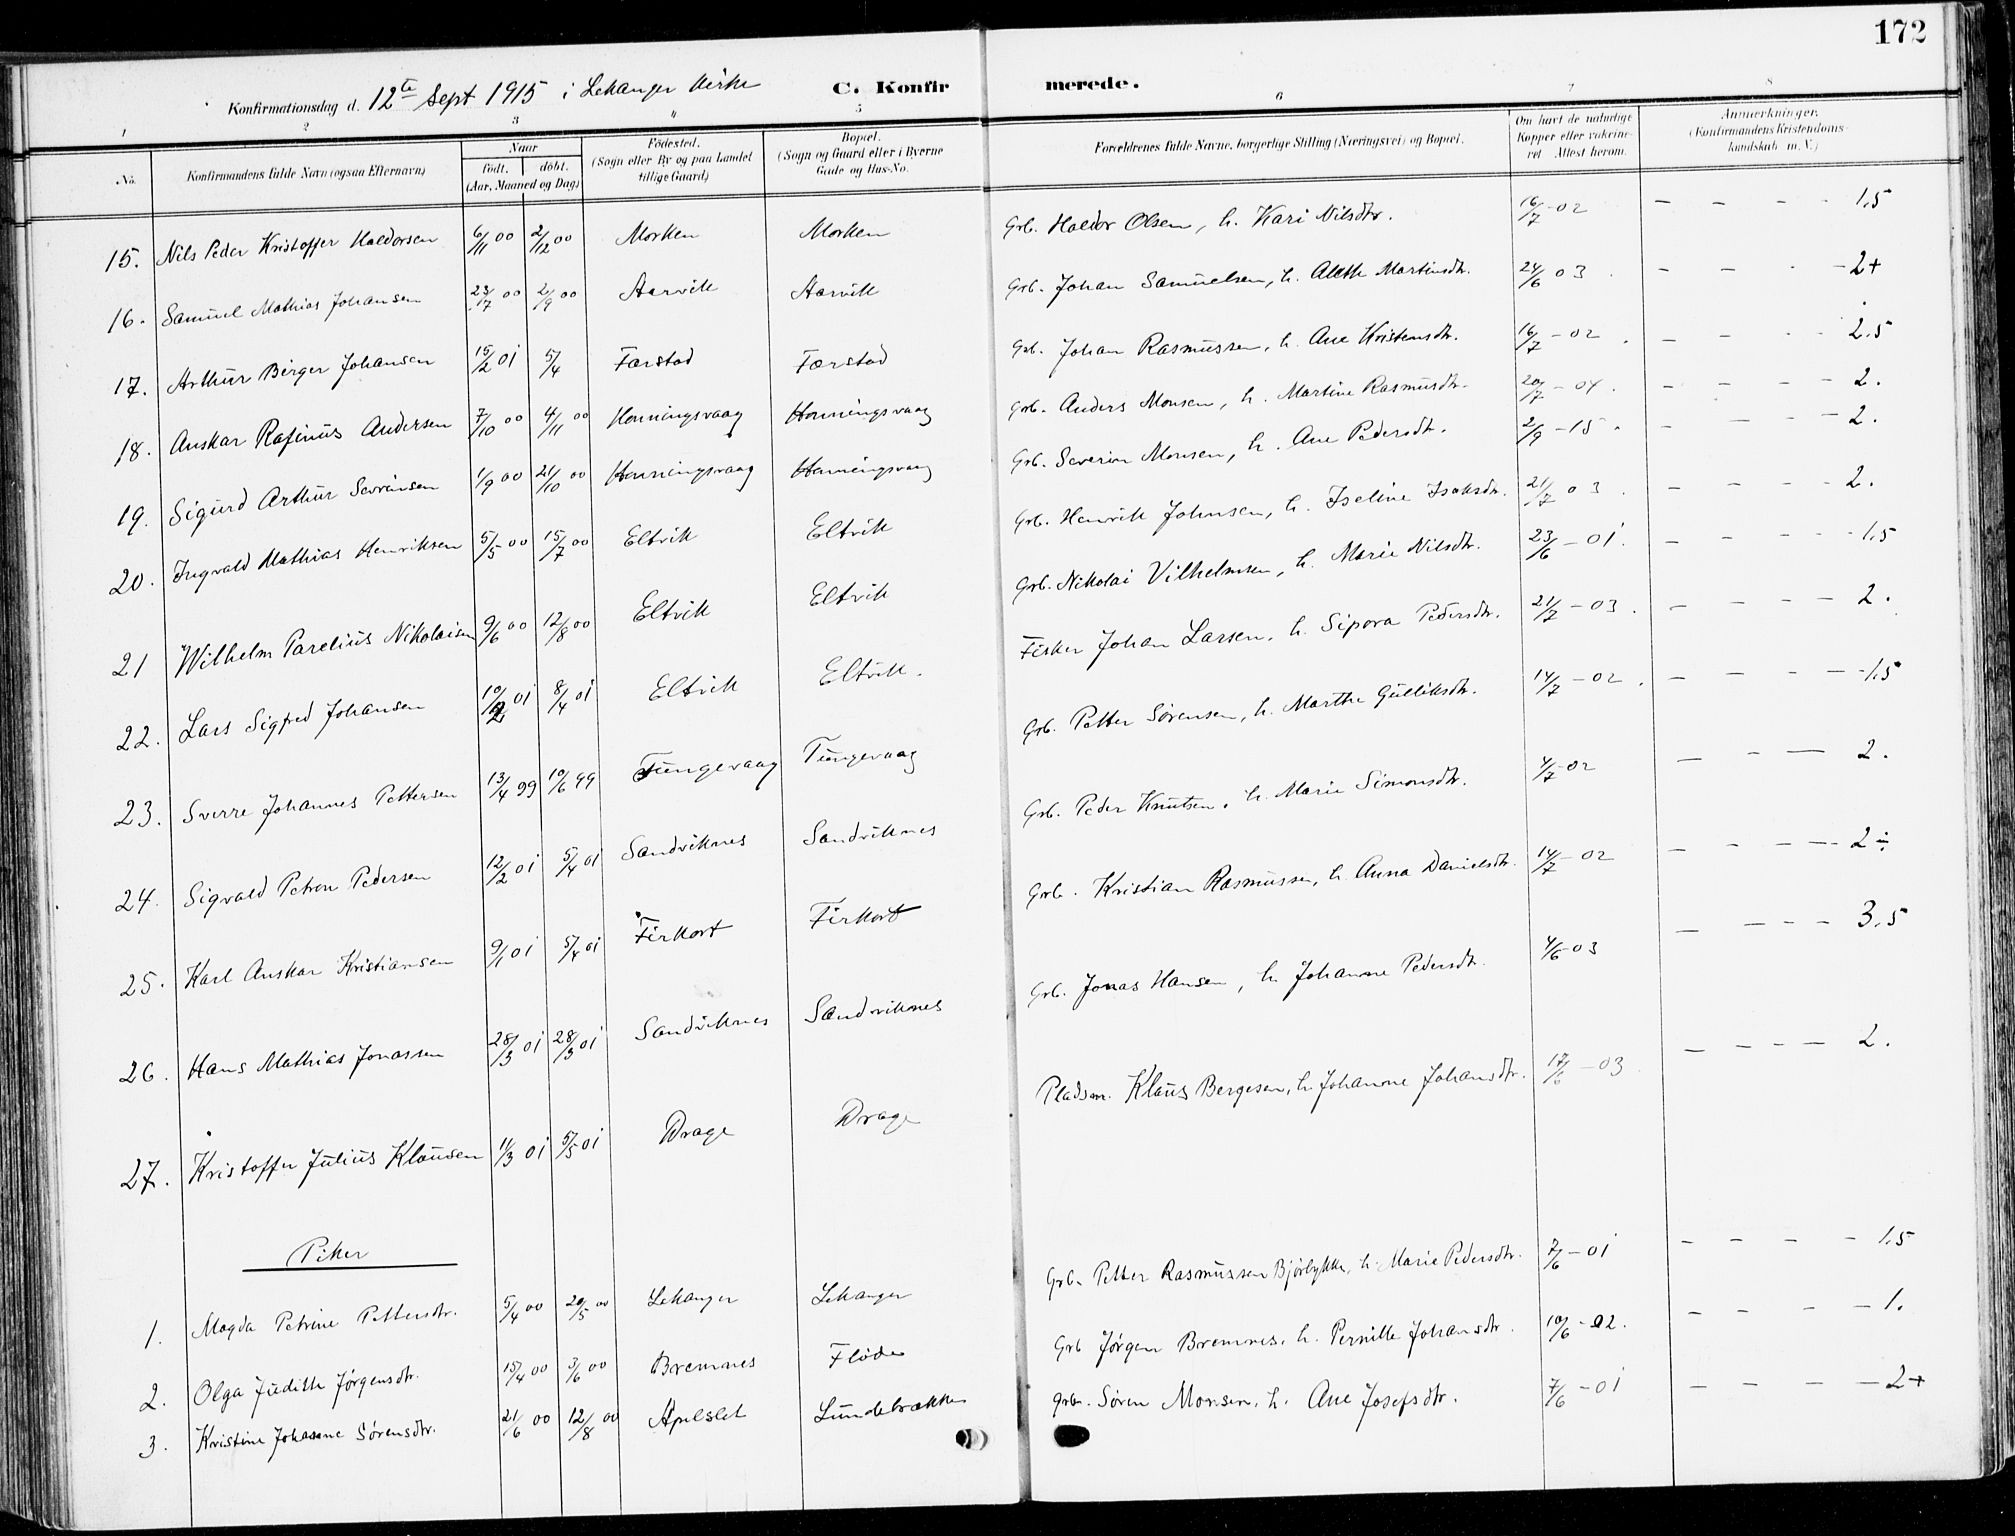 172
Konfirmationsdag d. 12te Sept 1915 i Lekanger Kirke C. Konfirmerede.
1 2 3 4 5 6 7 8
No. Konfirmandens fulde Navn (ogsaa Efternavn) Naar født. døbt. (Aar, Maaned og Dag) Fødested. (Sogn eller By og paa Landet tillige Gaard) Bopæl. (Sogn og Gaard eller i Byerne Gade og Hus-No. Forældrenes fulde Navne, borgerlige Stilling (Næringsvei) og Bopæl. Om havt de naturlige Kopper eller vakcineret Attest herom. Anmerkninger. (Konfirmandens Kristendomskundskab m. V.)
15. Nils Peder Kristoffer Haldorsen 6/11 00 2/12 00 Morken Morken Grb. Haldor Olsen, h. Kari Nilsdtr. 16/7 - 02 — — - - 1.5
16. Samuel Mathias Johansen 23/7 00 2/9 00 Aarvik Aarvik Grb. Johan Samuelsen, h. Aleth Martinsdtr. 24/6 03 - - - - 2+
17. Arthur Birger Johansen 15/2 01 5/4 Færstad Færstad Grb. Johan Rasmussen, h. Ane Kristensdtr. 16/7 - 02 - - - - 2.5
18. Anskar Rafinus Andersen 7/10 00 4/11 00 Honningsvaag Honningsvaag Grb. Anders Monsen, h. Martine Rasmusdtr. 20/7 - 04 - - - - 2.
19. Sigurd Arthur Sevrinsen 1/9 00 21/10 00 Honningsvaag Honningsvaag Grb. Severin Monsen, h. Ane Pedersdtr. 2/9 - 15 - - - - 2.
20. Ingvald Mathias Henriksen 5/5 00 15/7 00 Eltvik Eltvik Grb. Henrik Johnsen, h. Iseline Isaksdtr. 21/7 03 - - - - 2.
21 Wilhelm Parelius Nikolaisen 9/6 00 12/8 00 Eltvik Eltvik Grb. Nikolai Vilhelmsen, h. Marie Nilsdtr. 23/6 - 01. - - - - 1.5
22. Lars Sigfred Johansen 10/2 01 8/4 01 Eltvik Eltvik. Fisker Johan Larsen. h. Sipora Pedersdtr. 21/7 - 03. - - - - 2.
23. Sverre Johannes Pettersen 13/4 99 10/6 99 Tungevaag Tungevaag Grb. Petter Sørensen, h. Marthe Gulliksdtr. 14/7 - 02. - - - - 1.5
24. Sigvald Petron Pedersen 12/2 01 5/4 01 Sandviknes Sandviknes Grb. Peder Knutsen. h. Marie Simonsdtr. 4/7 - 02 — - — 2.
25. Karl Anskar Kristiansen 9/1 01 5/4 01 Firkort Firkort Grb. Kristian Rasmussen, h. Anna Danielsdtr. 14/7 - 02 - - - - 2÷
26. Hans Mathias Jonassen 28/3 01 28/3 01 Sandviknes Sandviknes Grb. Jonas Hansen, h. Johanne Pedersdtr. 4/6 - 03 - - - - 3.5
27. Kristoffer Julius Klausen 11/3 01 5/5 01 Drage Drage Pladsm. Klaus Bergesen, h. Johanne Johansdtr. 17/6 - 03 - - - - 2.
Piker
1. Magda Petrine Pettersdtr. 5/4 00 20/5 00 Lekanger Lekanger Grb. Petter Rasmussen Bjørlykke, h. Marie Pedersdtr. 7/6 - 01 - - - - 1.5
2. Olga Judith Jørgensdtr. 15/4 00 3/6 00 Bremnes Fløde Grb Jørgen Bremnes. h. Pernille Johansdtr. 10/6 - 02. - - - - 1.
3. Kristine Johanne Sørensdtr. 21/6 00 12/8 00 Apelset Lundebrække grb. Søren Monsen. h. Ane Josefsdtr. 7/6 - 01 - - - - 2+